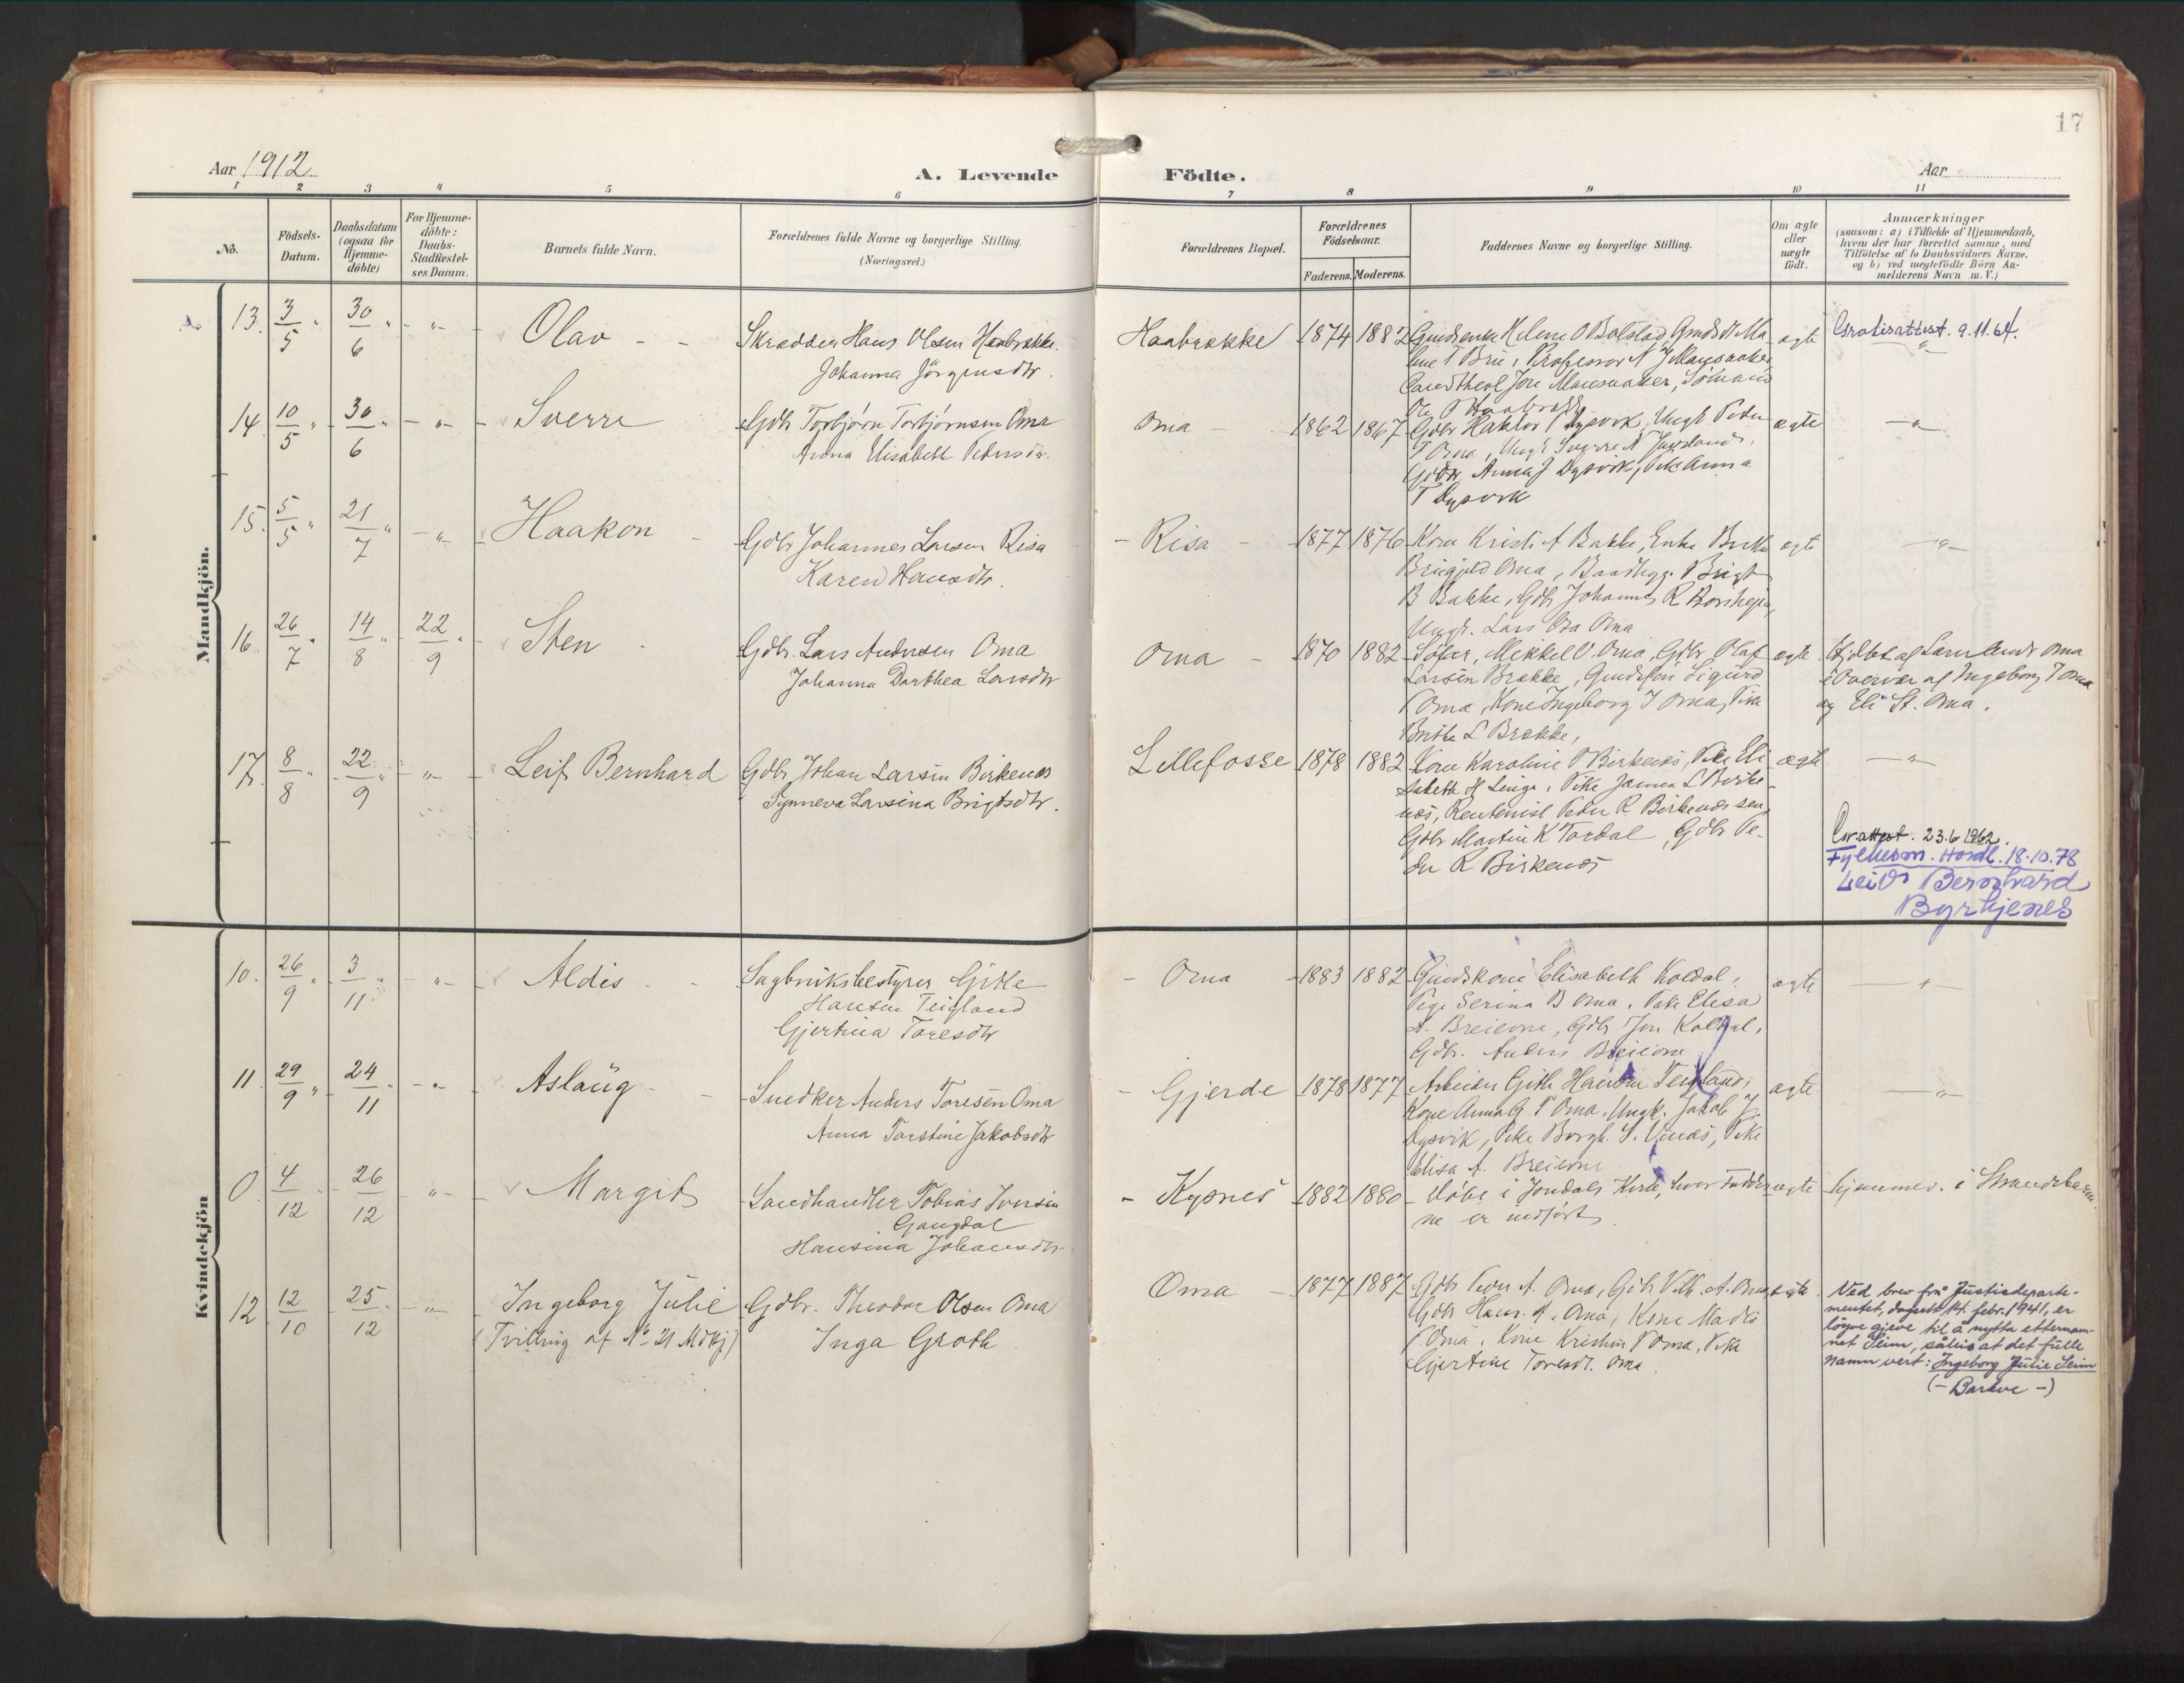 17
Aar 1912
A. Levende
Födte.
Aar
1 2 3 4 5 6 7 8 9 10 11
No.
Födsels-Datum.
Daabsdatum (ogsaa for Hjemme-döbte)
For Hjemme-döbte: Daabs-Stadfæstel-ses Datum.
Barnets fulde Navn.
Forældrenes fulde Navne og borgerlige Stilling.
(Næringsvei.)
Forældrenes Bopæl.
Forældrenes Födselsaar.
Faderens. Moderens.
Faddernes Navne og borgerlige Stilling.
Om ægte eller uægte födt.
Anmærkninger
(saasom: a) i Tilfælde af Hjemmedaab,
hvem der har forrettet samme, med
Tilföielse af to Daabsvidners Navne,
og b) ved uægtefödte Börn An-
melderens Navn m. V.)
Mandkjön.
13. 3/5 " 30/6 " - " - Olav - -
Skrædder Hans Olsen Haabrekke.
Johanna Jörgensdtr.
Haabrekke 1874 1882
Gaardsenke Helene O Bolstad, Gmdsdt. Ma-
lene T Brie, Professor N J Mansaaker
Cand theol Jon Mansaaker, Sömand
Ole O Haabrekke
ægte
Gratisattest. 9.11.64.
14. 10/5 " 30/6 " - " - Sverre
Gdbr Torbjørn Torbjørnsen Oma
Anna Elisabeth Pedersdtr.
Oma - 1862 1867
Gdbr Haktor T Dysvik, Ungk Peder
T Oma, Ungk Sverre N
Anna J Dysvik, Pike Anna
T Dysvik
ægte - " -
15. 5/5 " 21/7 " - " - Haakon -
Gdbr Johannes Larsen Risa
Karen Hansdtr.
- Risa - 1877 1876
Kone Kristi A Bakke, Enke
Oma, Baadbygg. Brigt
B Bakke, Gdbr Johannes R
Ungk. Lars Oma
ægte - " -
16. 26/7 " 14/8 " 22/9 " - Sten -
Gdbr. Lars Andersen Oma
Johanna Dorthea Larsdtr
Oma - 1870 1882
Mikkel O. Oma, Gdbr Olaf
Larsen Brekke, Gmdssön Sigurd
Oma, Kone Ingeborg J Oma, Pike
Brithe L Brekke,
ægte
Hjdbt af Lars Ands Oma
i Overvær af Ingeborg J Oma
og Eli St. Oma.
17. 8/8 " 22/9 " - " - Leif Bernhard
Gdbr Johan Larsen Birkenæs
Synneva Larsina Brigtsdtr.
Lillefosse 1878 1882
Kone Karoline P Birkenæs, Pike Eli-
sabeth H Linga, Pike Janna L Birke-
næs, Rentenist Peder R. Birkenæs sen,
Gdbr Martin K Tordal, Gdbr Pe-
der R Birkenæs
ægte - " -
attest. 23.6.1962.
Fylkesm. Hordl. 18.10.78
Leif Bernhard
Byrkjenes
Kvindekjön
10. 26/9 " 3/11 " - " - Aldis - -
Sagbruksbestyrer Gitle
Hansen Teigland
Gjertina Toresdtr
- Oma - 1883 1882
Gmdskone Elisabeth Koldal,
Pige Serina B Oma, Pike Elisa
A. Breiene, Gdbr Jon Koldal,
Gdbr. Anders
ægte - " -
11. 29/9 " 24/11 " - " - Aslaug - -
Snedker Anders Toresen Oma
Anna Torstine Jakobsdtr
- Gjerde 1878 1877
Arbeider Gitle Hansen Teigland,
Kone Anna G. T Oma, Ungk. Jakob J.
Dysvik, Pike Borgh. S. Vinæs, Pike
Elisa A. Breiene
ægte - " -
0. 4/12 " 26/12 " - Margit
Landhandler Tobias Iversen
Gangdal
Hansina Johansdtr
- Kysnes 1882 1880
Döbt i Jondals Kirke, hvor Fadder-
ne er indført.
ægte
hjemmev. i Strandebarm.
12 12/10 25/12 - " - Ingeborg Julie
(Tvilling af No 21 Mdkj)
Gdbr. Theodor Olsen Oma
Inga Groth
Oma - 1877 1887
Gdbr Peder A. Oma, Gdbr Vilh. A. Oma,
Gdbr Hans A. Oma, Kone Madis
Oma, Kone Kristine P Oma, Pike
Gjertine Toresdt. Oma.
ægte
Ved brev frå Justisdeparte-
mentet, dagsett 14. febr. 1941, er
löyve gjeve til å nytta etternam-
net Seim, såleis at det fulle
namn vert: Ingeborg Julie Seim
(- Barkve -)